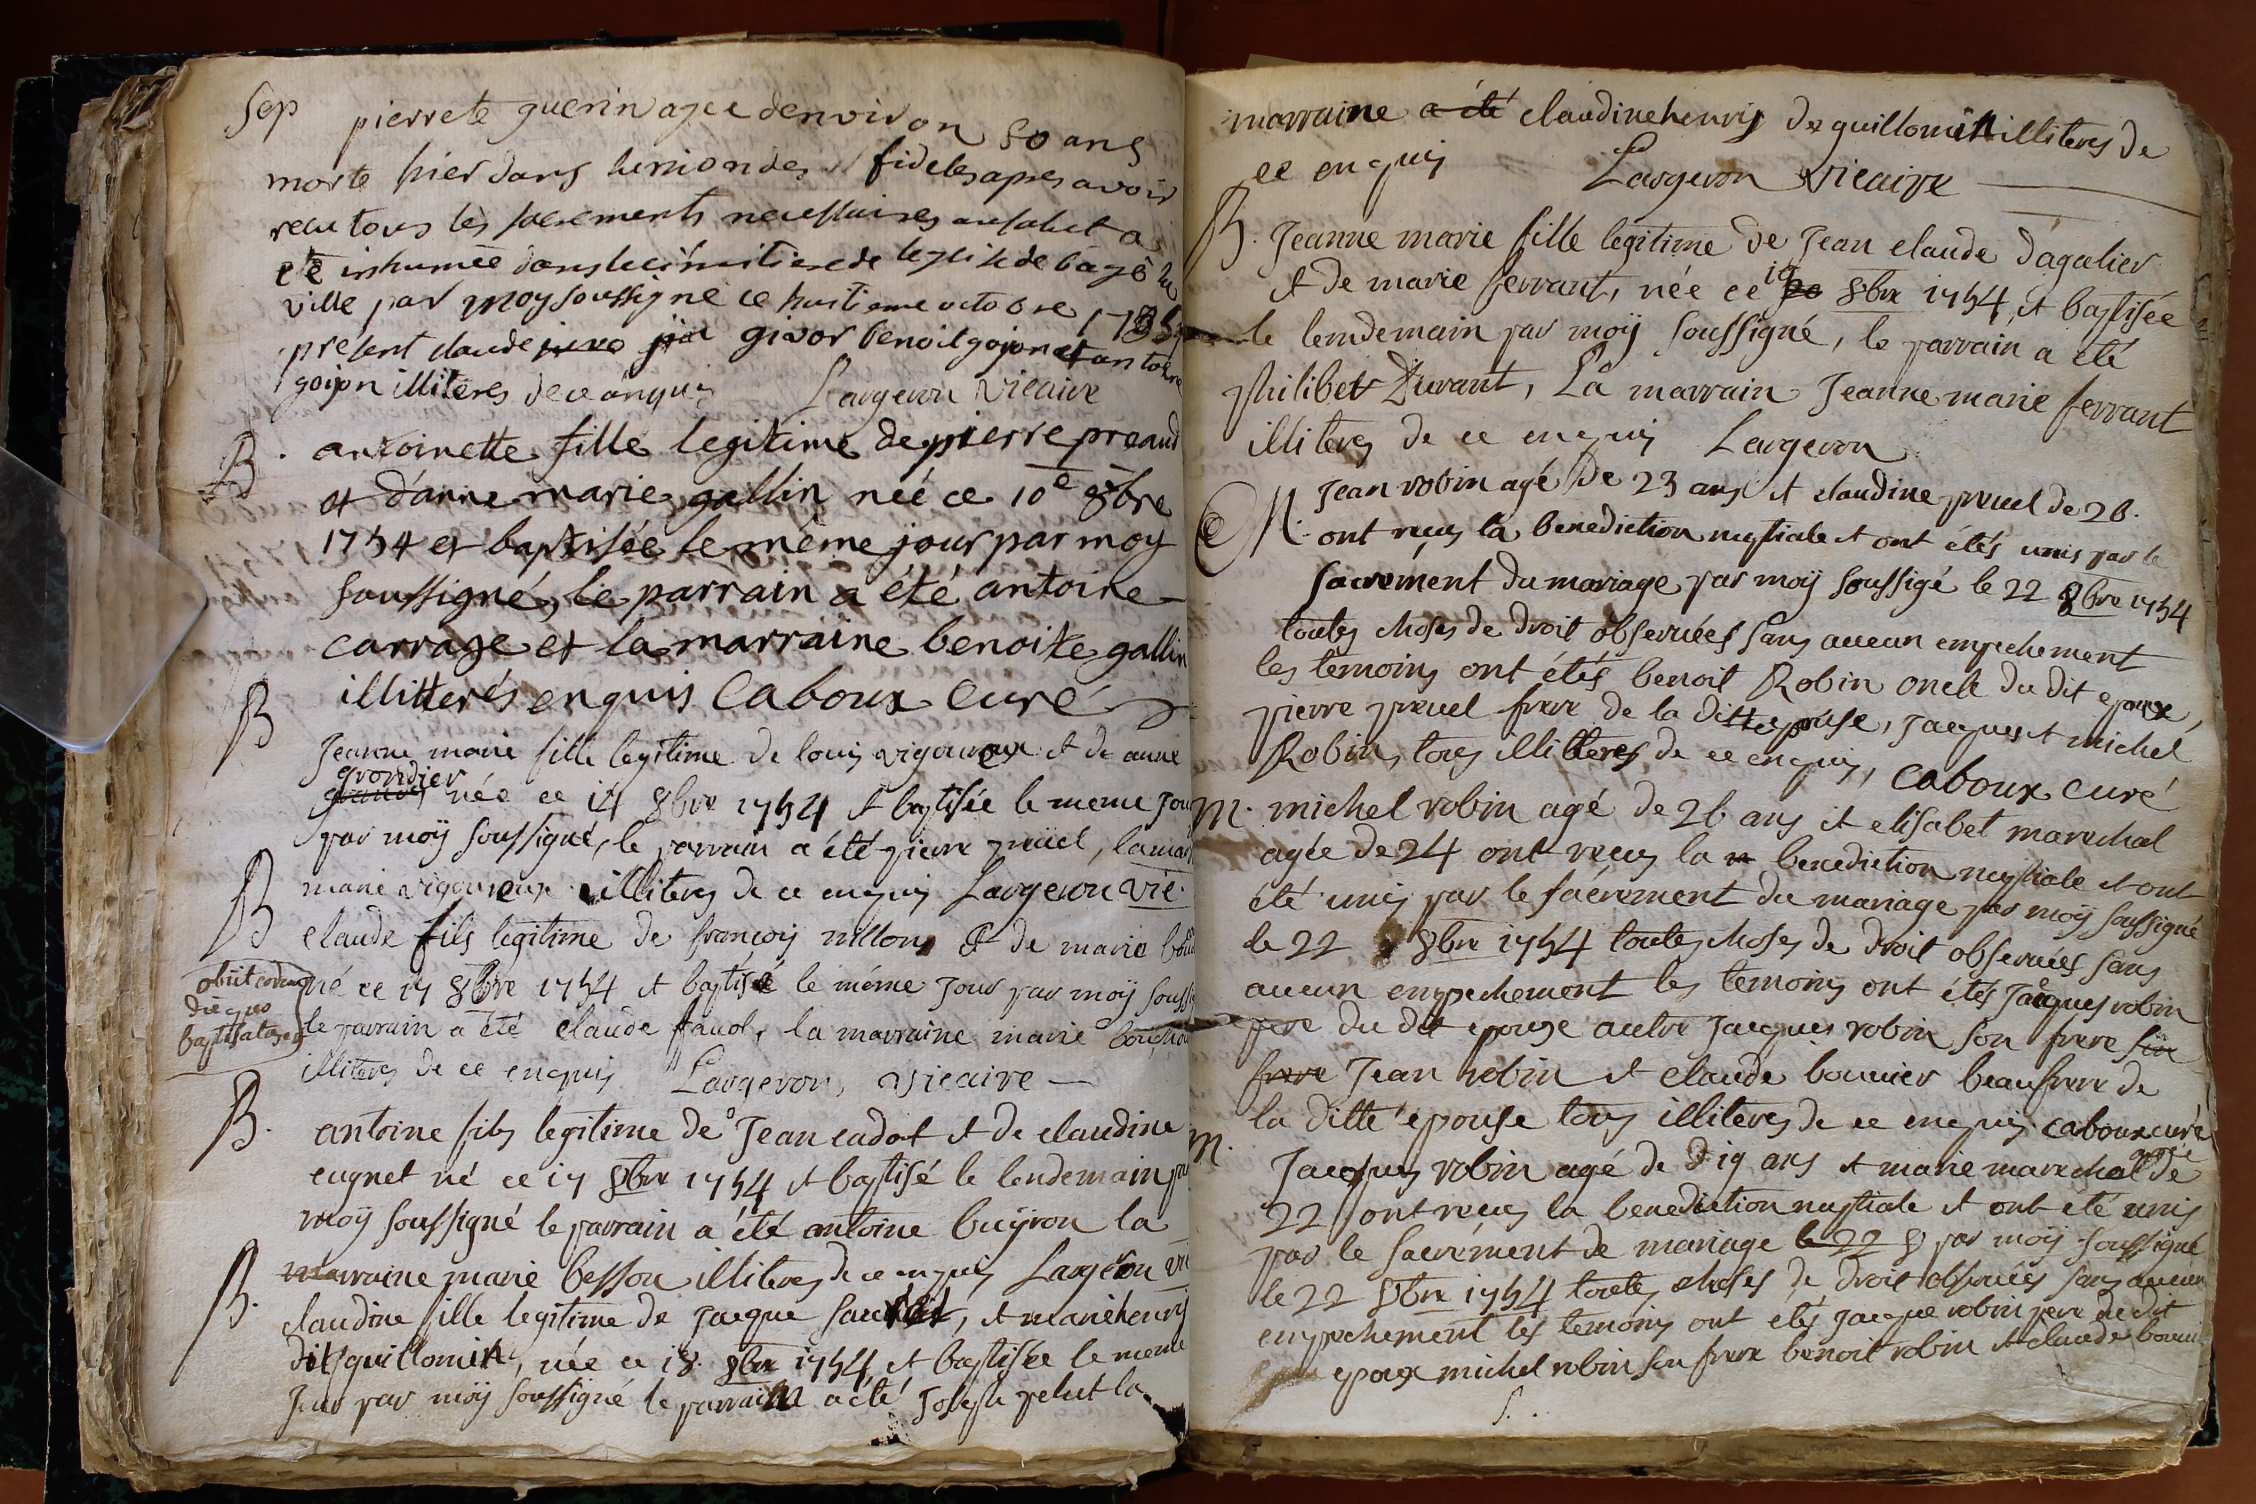 Sep pierrete guerin agee denviron 80 ans
morte hier dans lunion des fideles apres avoir
recu tous les sacrements necessaires au salut a
été inhumée dans le cimitiere de leglise de bagé la
ville par moy soussigné ce huitieme octobre 1754
présent claude givor benoit gojon et antoine
gojon illiteres de ce enquis Largeron vicaire
B. antoinette fille legitime de pierre preaud
et d'anne marie gallin née ce 10e 8bre
1754 et baptisée le même jour par moy
soussigné, le parrain a été antoine
carrage et la marraine benoite gallin
illitterés enquis Caboux curé
B Jeanne marie fille legitime de louis vigouroux et de anne
grondier
née ce 14 8bre 1754 et baptisée le meme Jour
par moÿ soussigné, le parrain a été pierre preüel, la mar
marie vigouroux illiteres de ce enquis Largeron vic.
B claude fils legitime de françois millon et de marie
né ce 17 8bre 1754 et baptisé le méme Jour par moÿ soussi
obiit eodem
die quo
baptisatus est
le parrain a été claude favol, la marraine marie bouchou
illiteres de ce enquis Largeron, vicaire
B. antoine fils legitime de Jean cadot et de claudine
cugnet né ce 17 8bre 1754 et baptisé le lendemain par
moÿ soussigné le parrain a été antoine buÿron la
marraine marie besson illiteres de ce enquis Largeron vi
B. claudine fille legitime de Jacque , et marie henry
dit guillomin, née ce 18. 8bre 1754 et baptisée le meme
Jour par moÿ soussigné le parrain a été Joseph pelut la
marraine a été claudine henry de guillomin illiteres de
ce enquis Largeron vicaire
B. Jeanne marie fille legitime de Jean claude dagalier
et de marie ferrant, née ce 19 8bre 1754, et baptisée
le lemdemain par moÿ soussigné, le parrain a été
philibet Durant, La marrain Jeanne marie ferrant
illiteres de ce enquis Largeron
M. Jean robin agé de 23 ans et claudine preuel de 26.
ont reçus la benediction nuptiale et ont étés unis par le
sacrement du mariage par moÿ soussigé le 22 8bre 1754
toutes choses de droit observées sans aucun empechement
les temoins ont étés benoit Robin oncle du dit epoux,
pierre preuel frere de la ditte epouse, Jacques et michel
Robin, tous illiteres de ce enquis, Caboux curé
M. michel robin agé de 26 ans et elisabet marechal
agée de 24 ont reçus la benediction nuptiale et ont
été unis par le sacrement du mariage par moÿ soussigné
le 22 8bre 1754 toutes choses de droit observées sans
aucun empechement les temoins ont étés Jacques robin
pere du dit epoux autre Jacques robin son frere son
frere Jean robin et claude bouvier beaufrere de
la ditte epouse tous illiteres de ce enquis caboux curé
M. Jacques robin agé de 19 ans et marie marechal agée de
22 ont reçus la benediction nuptiale et ont eté unis
par le sacrement de mariage le 22 8 par moÿ soussigné
le 22 8bre 1754 toutes choses de droit observées sans aucun
empechement les temoins ont etés Jacque robin pere du dit
epoux michel robin son frere benoit robin et claude bouvi